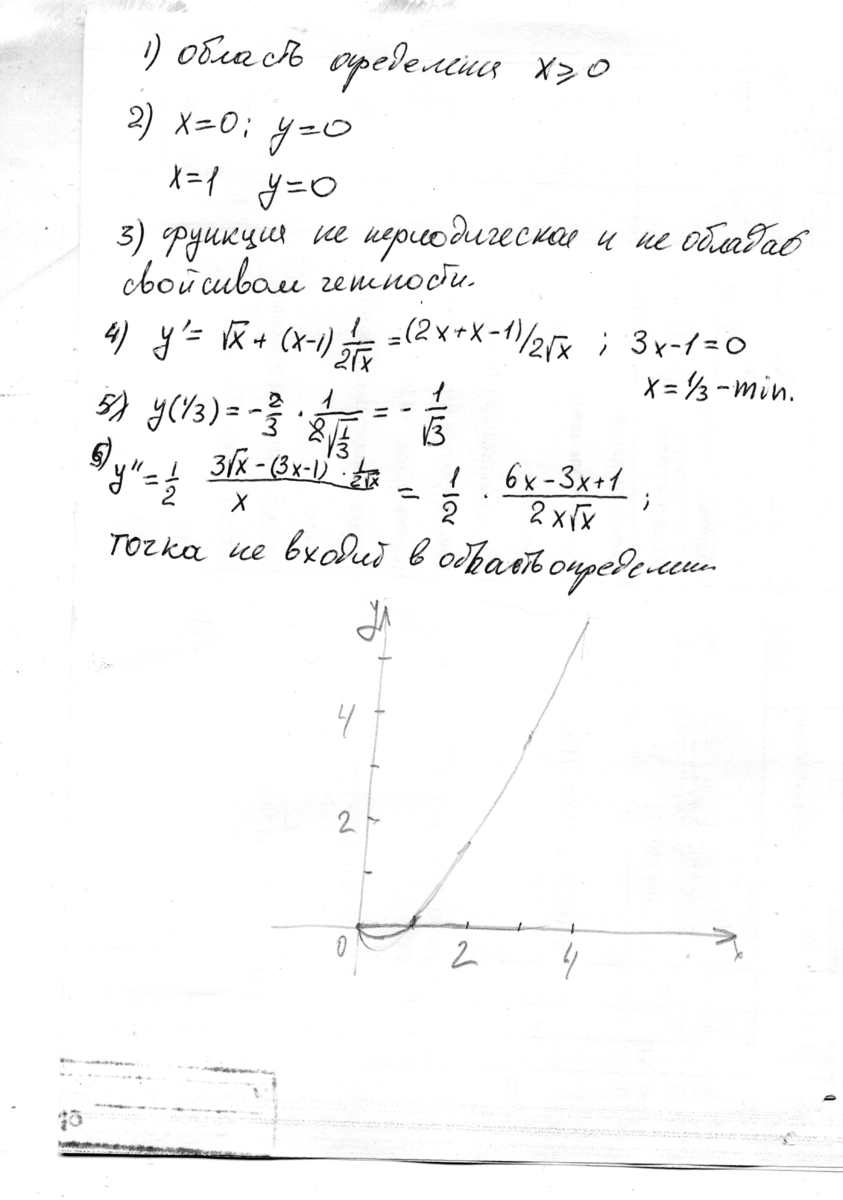 1) область определения x ⩾ 0
2) x=0; y=0
x=1 y=0
3) функция не периодическая и не обладает
свойствам четности.
4) y' = √x + (x-1) 1/2√x = (2x+x-1)/2√x ; 3x-1=0
x = 1/3 - min.
5) y(1/3) = -2/3 · 1/2√1/3 = - 1/√3
6) y'' = 1/2 3√x - (3x-1) · 1/2√x / x = 1/2 · 6x-3x+1 / 2x√x ;
точка не входит в область определения
y
4
2
0 2 4 x